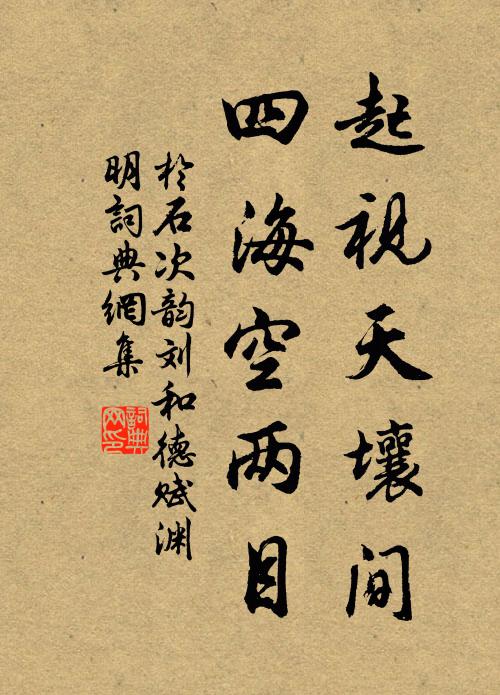 起视天壤间
四海空两目
於石次韵刘和德赋渊
明詞典網集
詞典网印